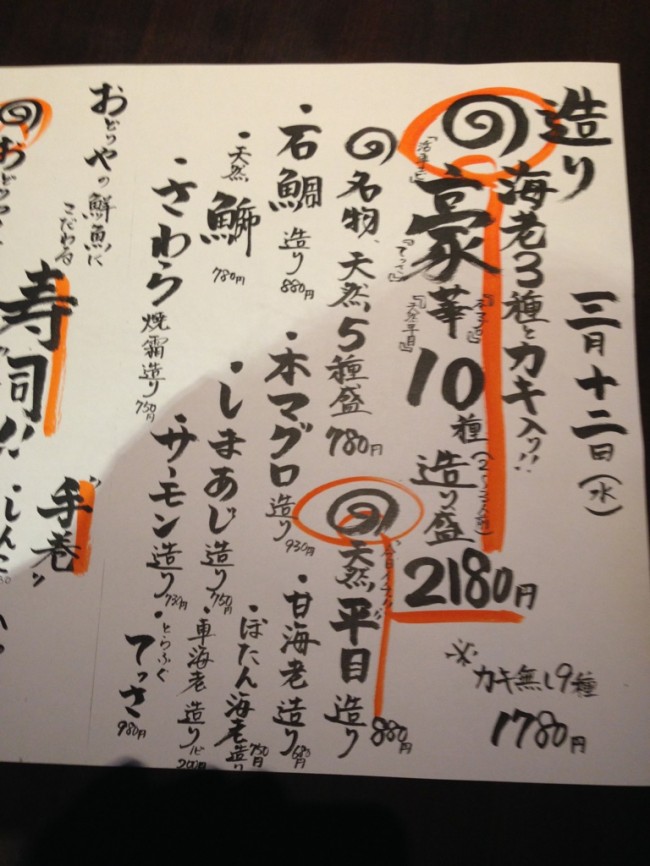 造り
三月十二日(水)
海老3種とカキ入り!!
豪華10種造り盛
2180円
※カキ無し9種
1780円
名物、天然5種盛 780円
天然平目造り 880円
・石鯛造り 880円
・本マグロ造り 930円
・甘海老造り 680円
・天然鰤 780円
・しまあじ造り 750円
・ぼたん海老造り 750円
・車海老造り
・さわら焼霜造り 750円
・サーモン造り 730円
・とらふぐてっさ 980円
おどりやの鮮魚に
こだわる
寿司!!
"手巻"
・しんこ